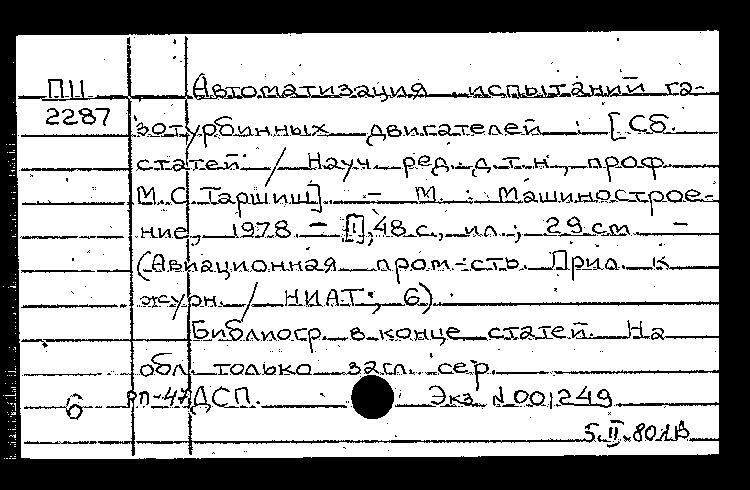 П11 Автоматизация испытаний га-
2287 зотурбинных двигателей : [Сб.
статей / Науч. ред. д.т.н., проф.
М.С. Таршиш]. - М. : Машинострое-
ние, 1978. - [1], 48 с., ил.; 29 см. -
(Авиационная пром-сть. Прил. к
журн. / НИАТ; 6).
Библиогр. в конце статей. На
обл. только загл. сер.
6 РП-47 ДСП. Экз. №001249
5.II.80